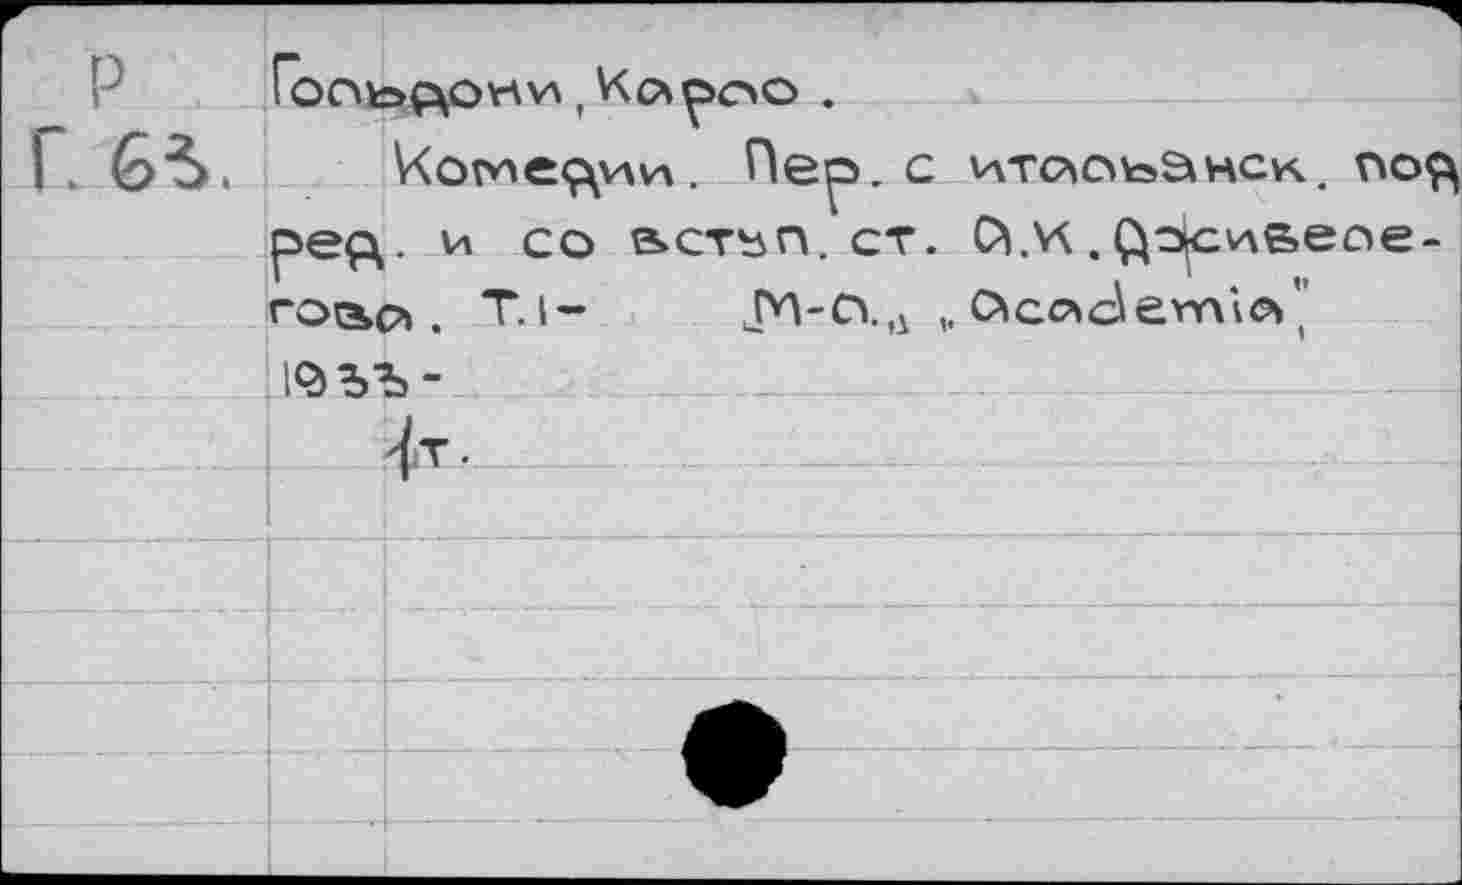 Р Гольдони, Карло.
Г. 63. Комедии. Пер. с итальянск. под
ред. и со вступ. ст. А.К. Дживеле-
гова. Т.1- М-Л., „Academia",
1933-
1т.